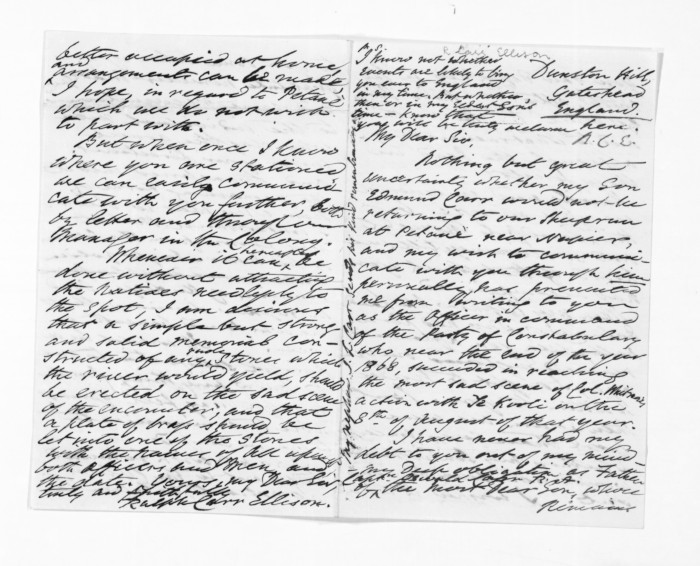 R Carr Ellison
P.S.
I know not whether
events are likely to bring
you ever to England
in my time. But whether
then or in my Eldest Son's
time – know that
you will be duly welcome here.
R. C. E.
Dunston Hill,
Gateshead
England.
My Dear Sir,
Nothing but great
uncertainty whether my Son
Edmund Carr would not be
returning to our sheep run
at Petane near Napier,
and my wish to communi-
cate with you through him
personally, has prevented
me from writing to you
as the Officer in command
of the Party of Constabulary
who near the end of the year
1868, succeeded in reaching
the most sad scene of Col. Whitmore's
action with Te Kooti on the
8th of August of that year.
I have never had my
debt to you out of my mind
my Deep obligation as Father
of Capt.
or the most dear son, whose
remains
better occupied at home,
and
arrangements can be made
I hope, in regard to Petane
which we do not wish
to part with.
But when once I know
where you are stationed
we can easily communi-
cate with you further, both
by letter and through our
Manager in the Colony.
Whenever it can hereafter be
done without attracting
the Natives needlessly to
the spot, I am desirous
that a simple but strong
and solid memorial con-
structed of any rude stones which
the river would yield, should
be erected on the sad scene
of the encounter; and that
a plate of brass should be
let into one of the stones
with the names of all
both officers and men, and
the date. Yours, my Dear Sir,
truly and
Ralph Carr Ellison.